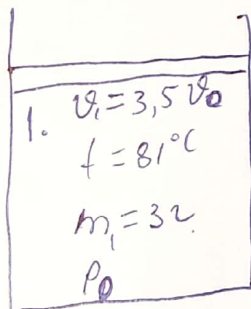 1. υ₁ = 3,5 υ₀
t = 81°C
m₁ = 3г.
P₀